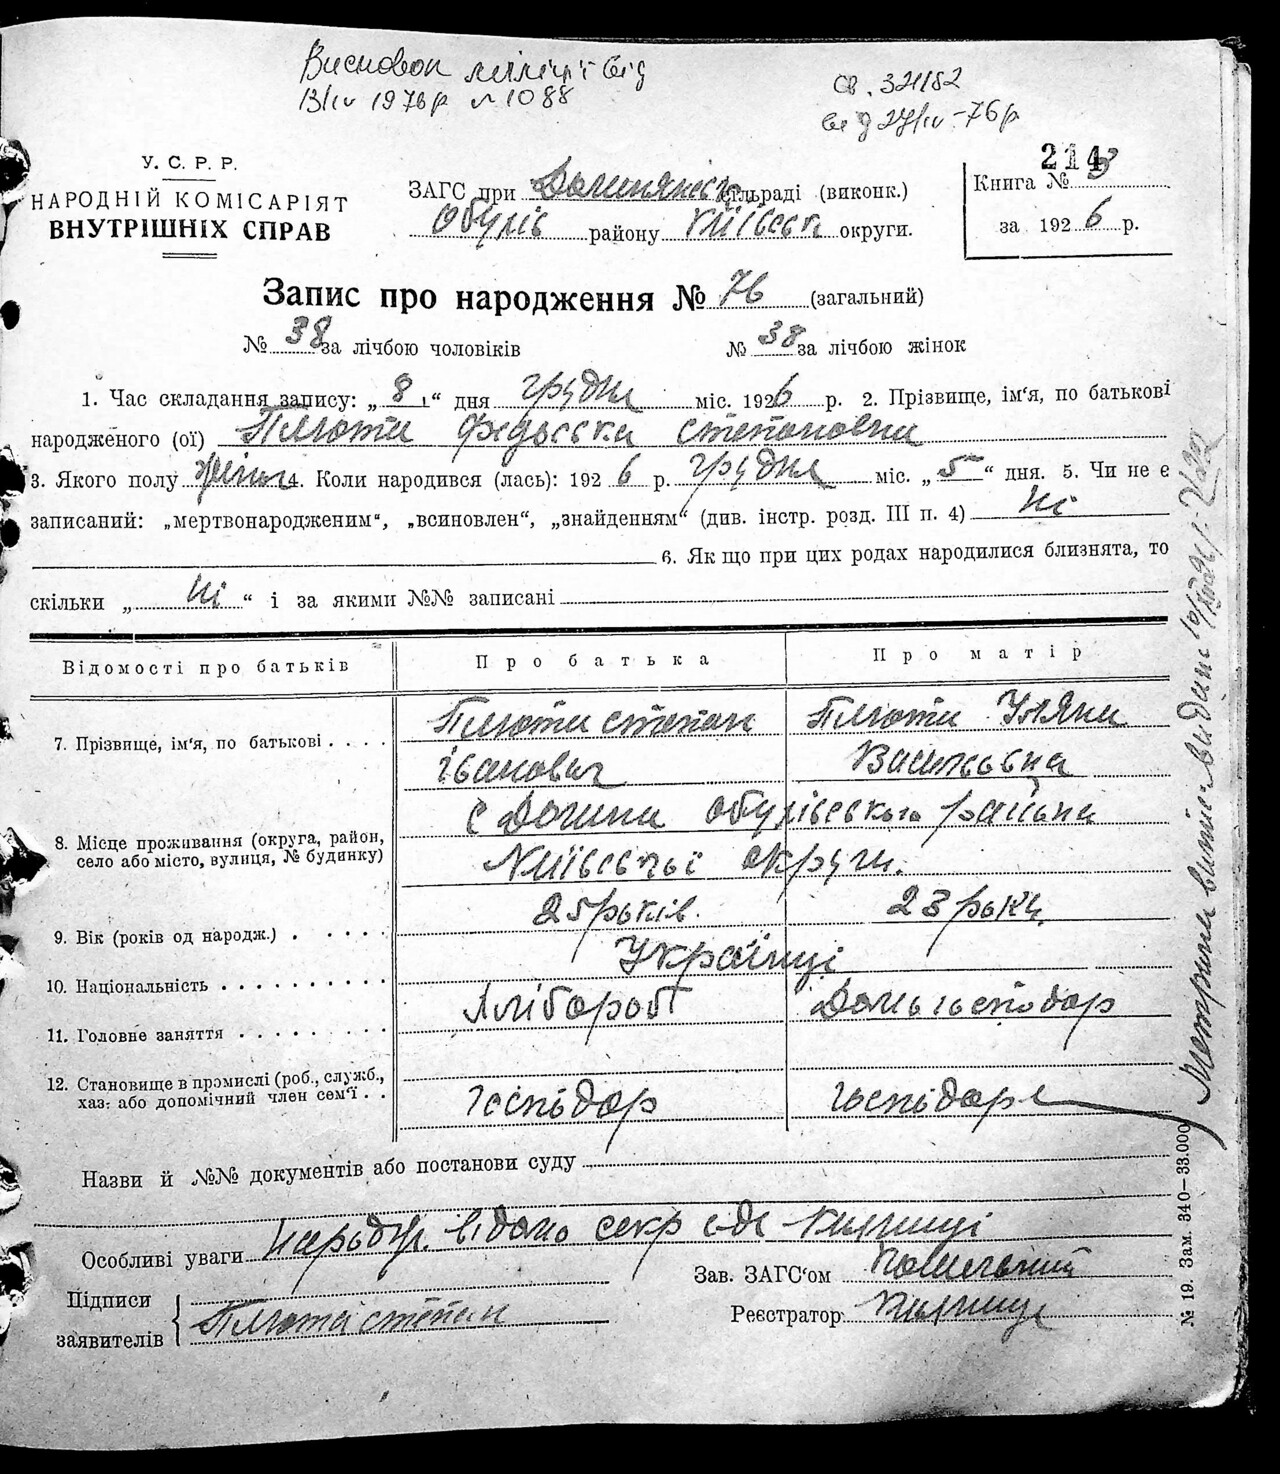 Висновок міліції від
13/IV 1976р № 1088
св. 321152
від 27/IV-76р
214
У. С. Р. Р.
НАРОДНІЙ КОМІСАРІЯТ
ВНУТРІШНІХ СПРАВ
ЗАГС при Долинянськ сільраді (виконк.)
Обухів району Київськ округи.
Книга № 3
за 1926 р.
Запис про народження № 76 (загальний)
№ 38 за лічбою чоловіків № 38 за лічбою жінок
1. Час складання запису: „ 8 “ дня грудня міс. 1926 р. 2. Прізвище, ім'я, по батькові
народженого (ої) Плюта Федоська Степановна
3. Якого полу жіноч 4. Коли народився (лась): 1926 р. грудня міс. „ 5 “ дня. 5. Чи не є
записаний: „мертвонародженим“, „всиновлен“, „знайденням“ (див. інстр. розд. III п. 4) Ні
6. Як що при цих родах народилися близнята, то
скільки „ Ні “ і за якими №№ записані
Відомості про батьків Про батька Про матір
7. Прізвище, ім'я, по батькові . . . . Плюта Степан Плюта Уляна
Іванович Васильовна
8. Місце проживання (округа, район,
село або місто, вулиця, № будинку)
с Долина Обухівського району
Київської округи.
9. Вік (років од народж.) . . . . . 25 років. 23 роки
10. Національність . . . . . . . . . . Українці
11. Головне заняття . . . . . . . . Хлібороб Домогосподар
12. Становище в промислі (роб., служб.,
хаз. або допомічний член сем'ї . .
господар господар
Назви й №№ документів або постанови суду
Особливі уваги відомо секр
Підписи
заявителів
Плюта Степан
Зав. ЗАГС'ом
Реєстратор
№ 19. Зам. 340—33.000